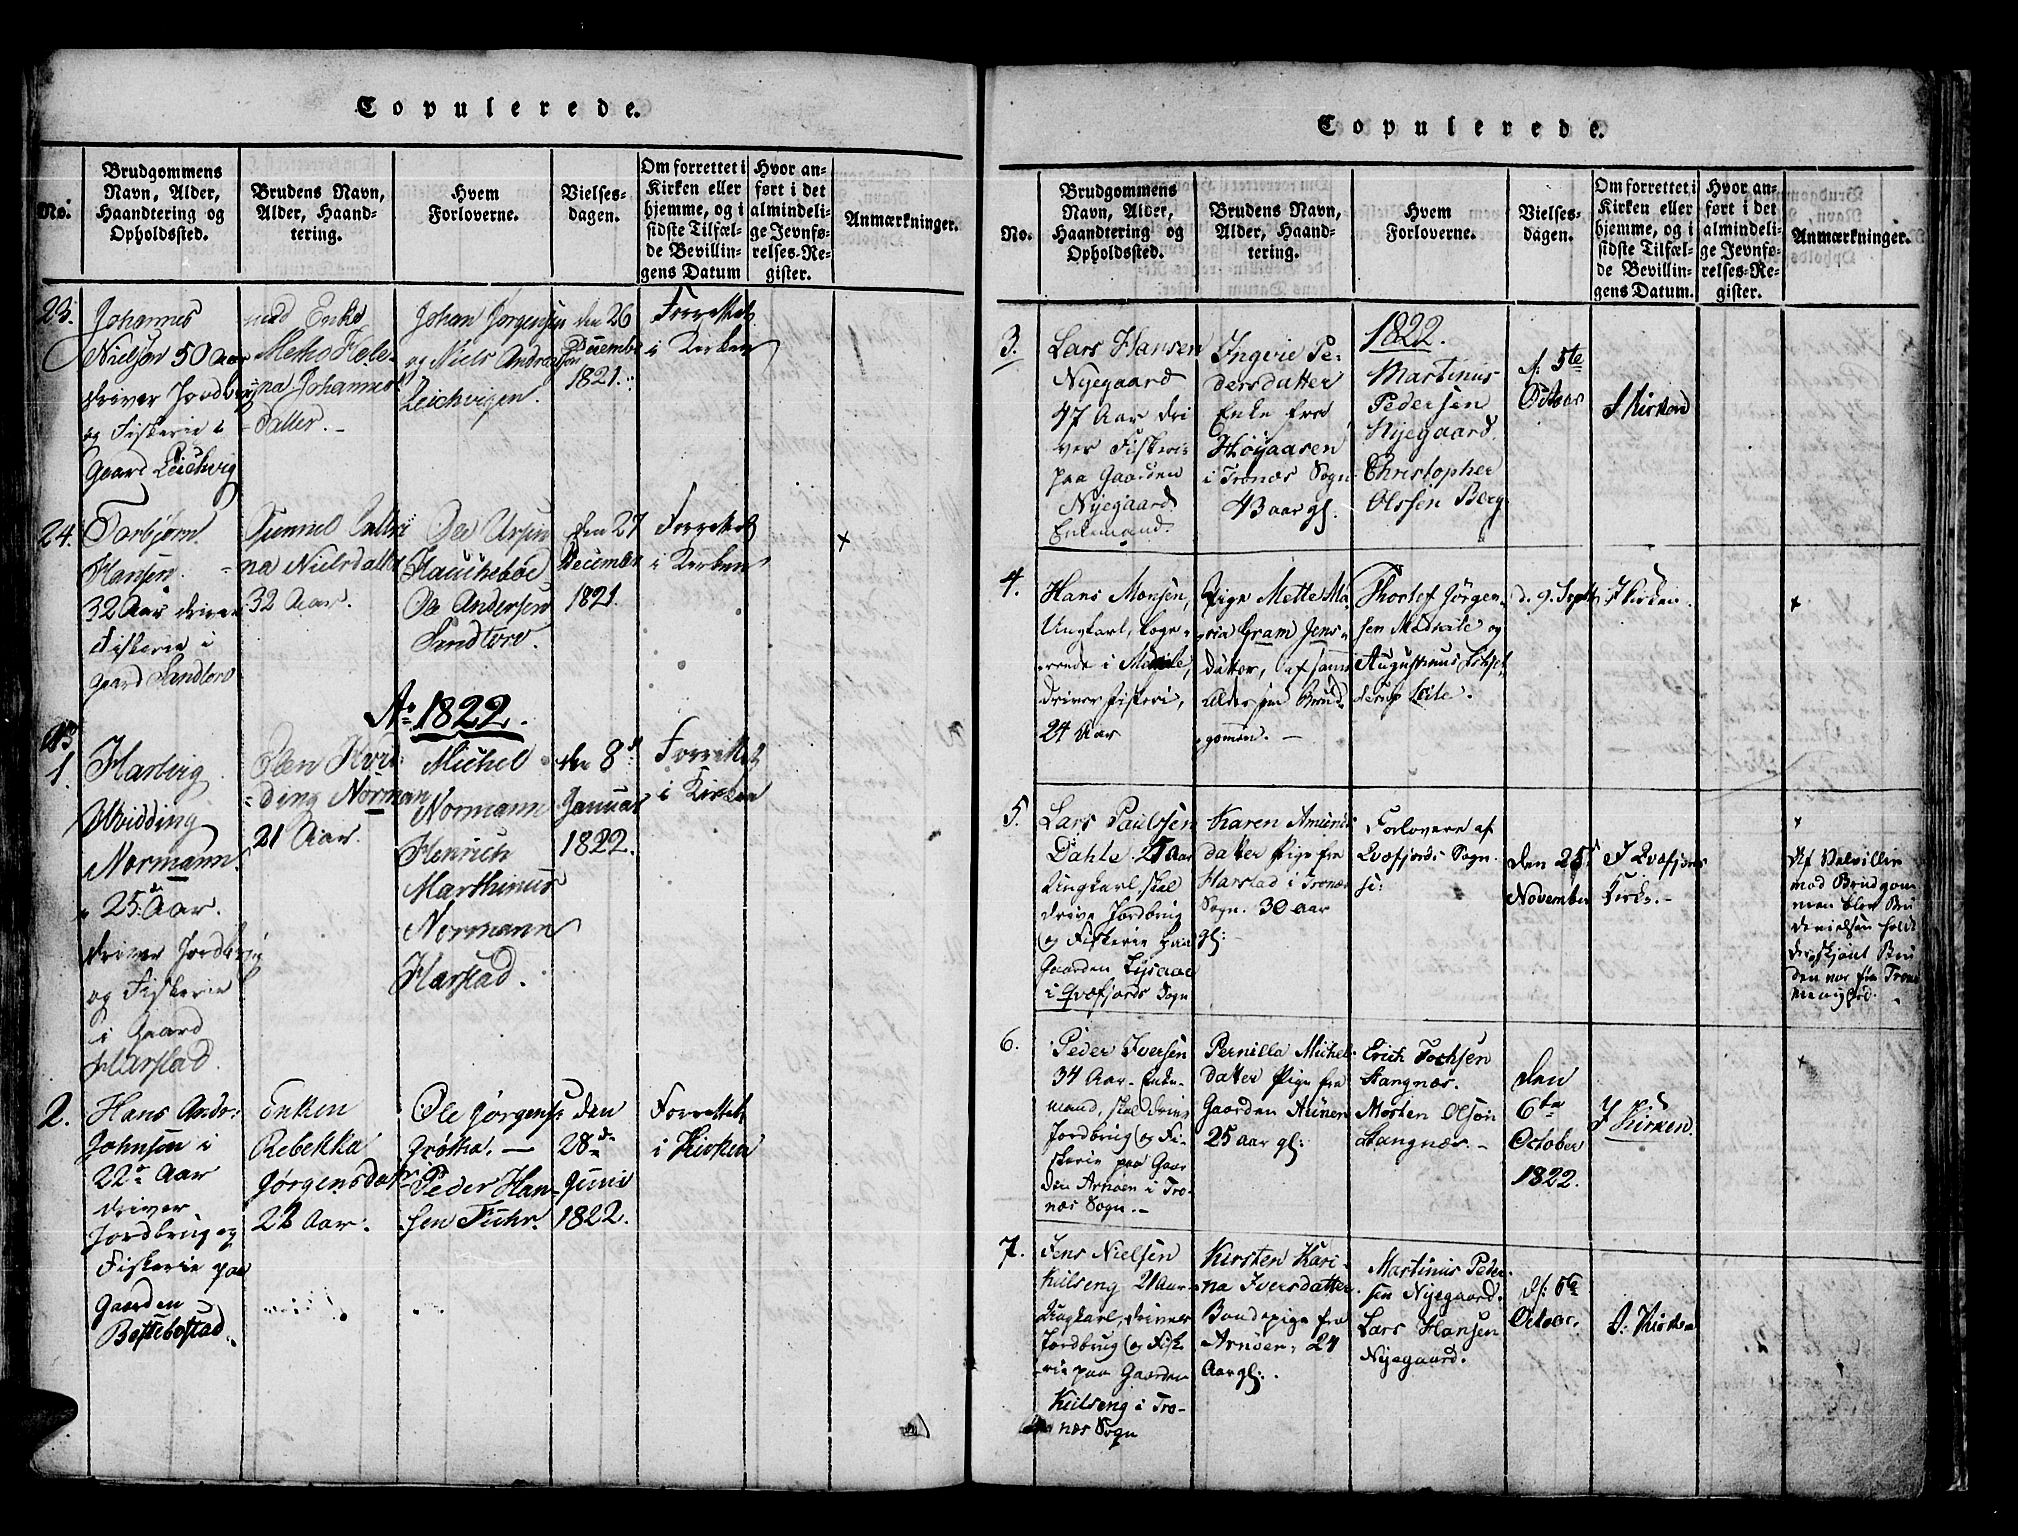 Copulerede.
No.
Brudgommens
Navn, Alder,
Haandtering og
Opholdssted.
Brudens Navn,
Alder, Haand-
tering.
Hvem
Forloverne.
Vielses-
dagen.
Om forrettet i
Kirken eller
hjemme, og i
sidste Tilfæl-
de Bevillin-
gens Datum
Hvor an-
ført i det
almindeli-
ge Jevnfø-
relses-Re-
gister.
Anmærkninger.
23.
Johannes
Nielsør 50 Aar
driver Jordbrug
og Fiskerie i
Gaard Leichvig
med Enke
Metho
Johannes
Datter.
Johan Jørgensen
og Niels Andreas
Leichvigen.
den 26
December
1821.
Forrettet
i Kirken
24.
Torbjørn
Hansen
32 Aar driver
Fiskerie i
gaard Sandtorv
Gunnel
na Nielsdatter
32 Aar.
Ole
Ole Andersen
Sandtorv.
den 27
December
1821.
Forrettet
i Kirken
+
Ao 1822.
1.
Harberg
Hvidding
Normann
25 Aar.
driver Jordbrug
og Fiskerie
i Gaard
Harstad
Elen Hvid-
ding Norman
21 Aar.
Michel
Normann
Henrich
Marthinus
Normann
Harstad.
den 8d
Januar
1822.
Forrettet
i Kirken
2.
Hans Andr:
Johnsen i
22 Aar
driver
Jordbrug og
Fiskerie paa
Gaarden
Bottebostad.
Enken
Rebekka
Jørgensdatter
22 Aar.
Ole Jørgens:
Grøtha. —
Peder Han-
sen Fuhr.
den
28de
Junii
1822.
Forrettet
i Kirken
Copulerede.
No.
Brudgommens
Navn, Alder,
Haandtering og
Opholdssted.
Brudens Navn,
Alder, Haand-
tering.
Hvem
Forloverne.
Vielses-
dagen.
Om forrettet i
Kirken eller
hjemme, og i
sidste Tilfæl-
de Bevillin-
gens Datum.
Hvor an-
ført i det
almindeli-
ge Jevnfø-
relses-Re-
gister.
Anmærkninger.
3.
Lars Hansen
Nyegaard
47 Aar dri
ver Fiskeri
paa Gaarden
Nyegaard
Enkemand.
Ingvie Pe-
dersdatter
Enke fra
Høyaasen
i Tronæs Sogn
43 aar gl.
1822.
Martinus
Pedersen
Nyegaard.
Christopher
Olssen Berg
d: 5te
Octobr
I Kirken
4.
Hans Monsen,
Ungkarl, loge-
rende i
driver Fiskeri,
24 Aar
Pige Mette Ma-
ria Gram Jens-
datter, af samme
Alder som Brud-
gommen. —
Thorlef Jørgen-
sen og
Augustinus
Leite.
d. 9. Septb
I Kirken.
+
5.
Lars Paulsen
Dahle 27 Aar
Ungkarl, skal
drive Jordbrug
og Fiskerie paa
Gaarden Lysaae
i Qvæfjords Sogn
Karen
datter Pige fra
Harstad i Tronæs
Sogn. 30 aar
gl: —
Forlovere af
Qvæfjords Sogn.
den 25
November
I Qvæfjords
Kirke. —
+
Af Velvillie
mod Brudgom
men blev Bru
devielsen holdt
der, skjønt Bru
den var fra Trone
menighed.
6.
Peder Iversen
34 Aar. Enke-
mand, skal drive
Jordbrug og Fi-
skerie paa Gaar
den Arnøen i Tro-
næs Sogn. —
Pernilla Michel-
datter Pige fra
Gaarden Aunen
25 aar gl:
Erich Tochsen
Stangnæs.
Morten Olsøn
Stangnæs. —
den
6te
October
1822.
I Kirken.
+
7.
Jens Nielsen
Kulseng 21 Aar
Ungkarl, driver
Jordbrug og Fiske
rie paa Gaarden
Kulseng i Tro-
næs Sogn
Kirsten Kari-
na Iversdatter.
Bondepige fra
Arnøen, 24
Aar gl:
Martinus Peder-
sen Nyegaard.
Lars Hansen
Nyegaard.
d: 6te
Octobr.
I Kirken